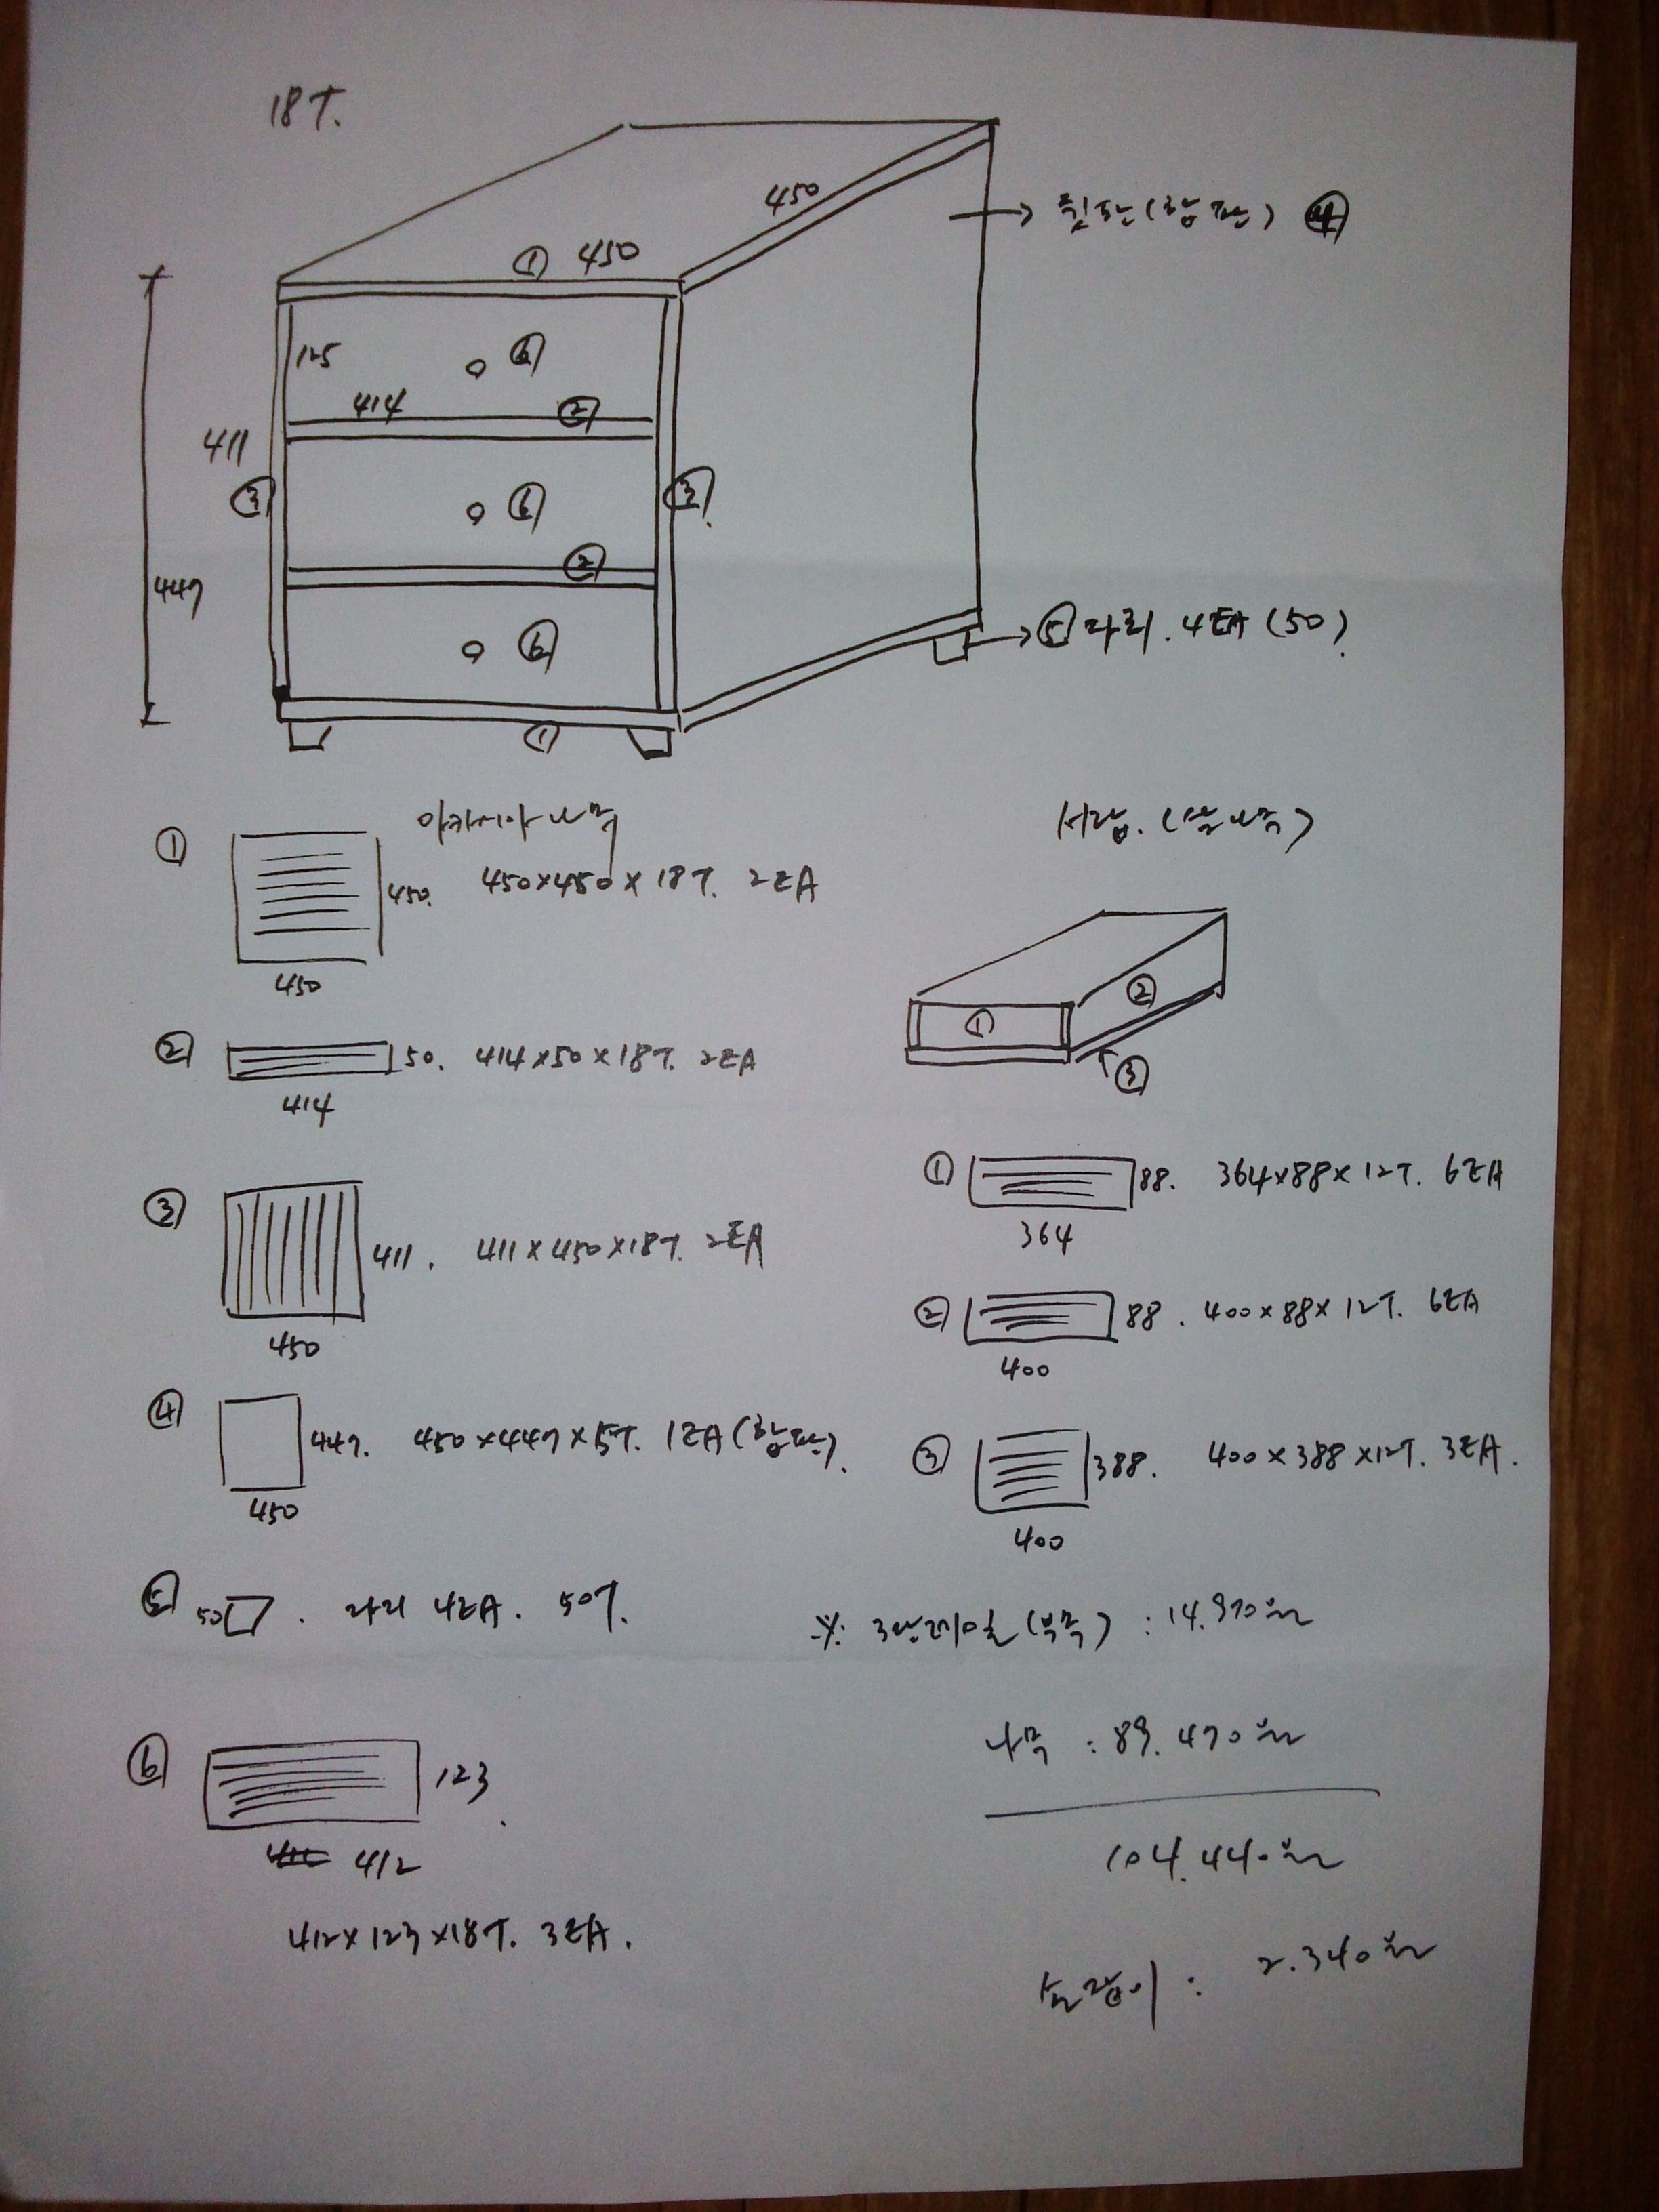 18T.
450
① 450
→ 뒷판(합판) ④
125
⑥
414
②
411
③
⑥
③
②
447
⑥
→ ⑤ 다리. 4EA (50).
①
아카시아나무
①
450.
450×450×18T. 2EA
450
② 50. 414×50×18T. 2EA
414
③ 411. 411×450×18T. 2EA
450
④ 447. 450×447×5T. 1EA(합판).
450
⑤ 50 . 다리 4EA. 50T.
⑥ 123.
412
412×123×18T. 3EA.
서랍. (삼나무)
①
②
③
① 88. 364×88×12T. 6EA
364
② 88. 400×88×12T. 6EA
400
③ 388. 400×388×12T. 3EA.
400
※. 3단레일(부속) : 14.970원
나무 : 89.470원
104.440원
손잡이 : 2.340원